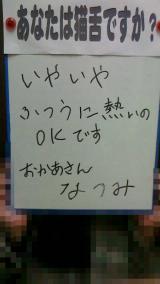 あなたは猫舌ですか?
いやいや
ふつうに熱いの
OKです
おかあさん
なつみ